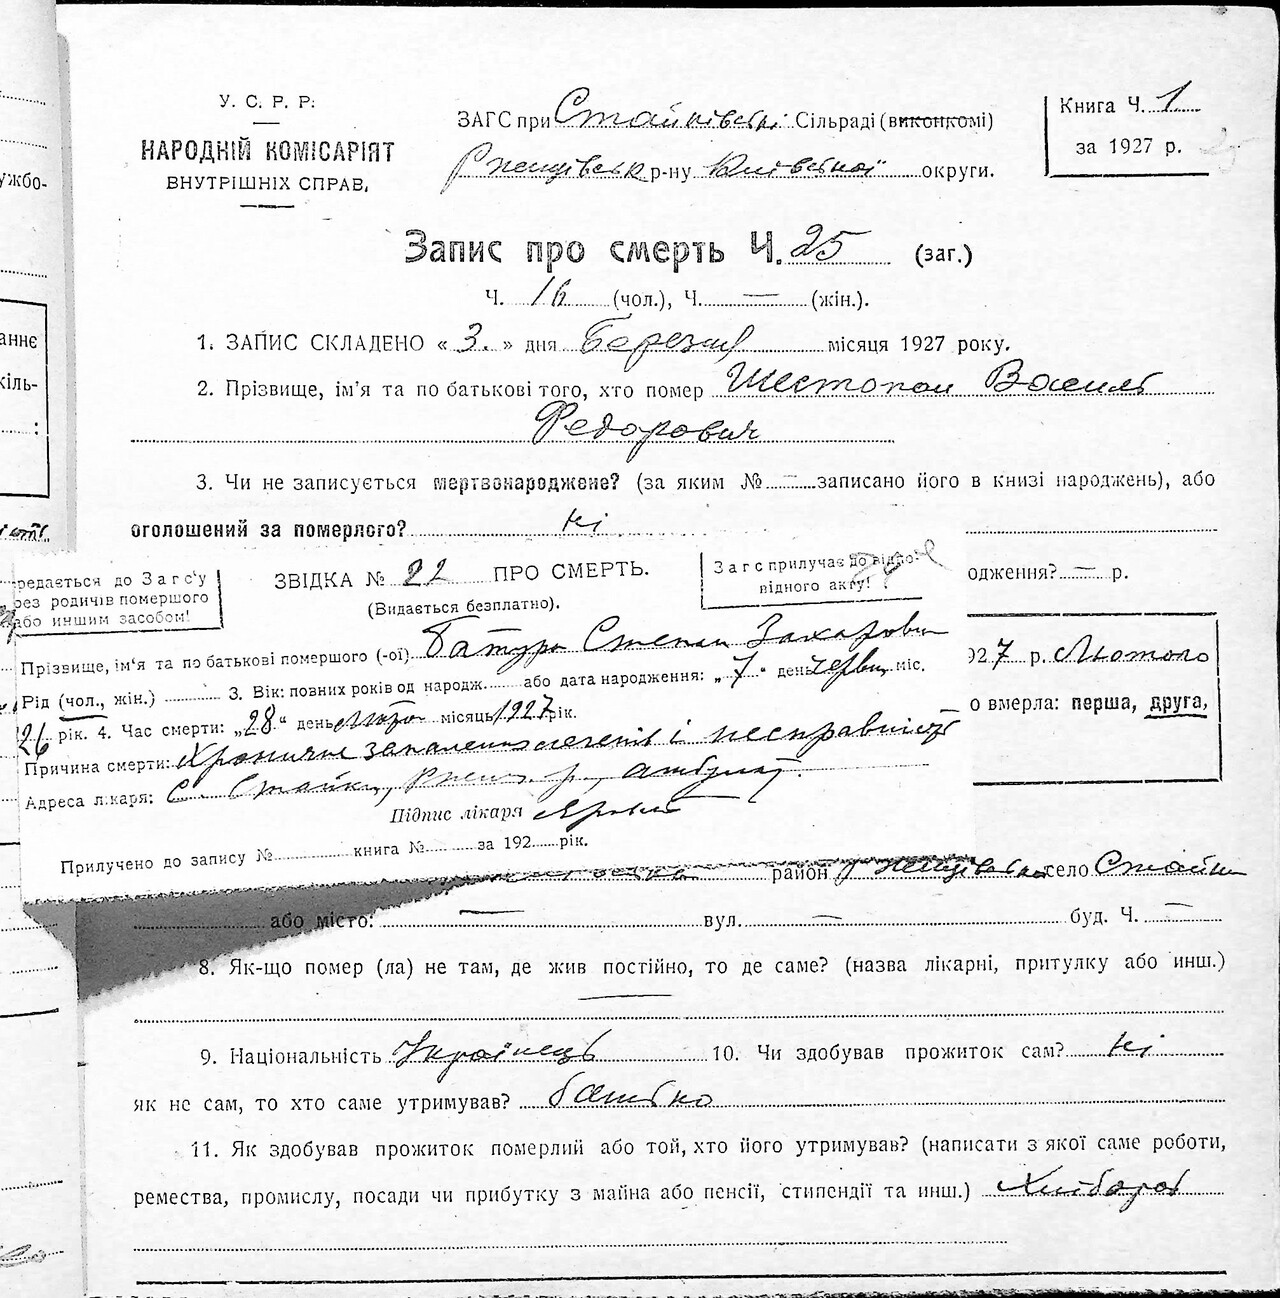 У. С. Р. Р.
НАРОДНІЙ КОМІСАРІЯТ
ВНУТРІШНІХ СПРАВ,
ЗАГС при Стайківській Сільраді (виконкомі)
Ржищівськ р-ну Київської округи.
Книга Ч. 1
за 1927 р.
25
Запис про смерть Ч. 25 (заг.)
Ч. 16 (чол.), Ч. — (жін.).
1. ЗАПИС СКЛАДЕНО « 3. » дня Березня місяця 1927 року.
2. Прізвище, ім'я та по батькові того, хто помер Шестопал Василь
Федорович
3. Чи не записується мертвонароджене? (за яким № — записано його в книзі народжень), або
оголошений за померлого? ні
одження? — р.
927 р. Лютого
о вмерла: перша, друга,
редається до Загс'у
рез родичів помершого
або иншим засобом!
ЗВІДКА № 22 ПРО СМЕРТЬ.
(Видається безплатно).
Загс прилучає до відпо-
відного акту!
Прізвище, ім'я та по батькові помершого (-ої) Батура Степан Захарович
Рід (чол., жін.) 3. Вік: повних років од народж. або дата народження: „7" день червн міс.
26 рік. 4. Час смерти: „28" день місяць 1927 рік.
Причина смерти: Хронічне запалення легенів і несправність
Адреса лікаря: с. Стайки, Ржищ. р., амбулат.
Підпис лікаря
Прилучено до запису № книга № за 192 рік.
район Ржищівськ село Стайки
або місто: — вул. — буд. Ч. —
8. Як-що помер (ла) не там, де жив постійно, то де саме? (назва лікарні, притулку або инш.)
—
9. Національність Українець 10. Чи здобував прожиток сам? ні
як не сам, то хто саме утримував? батько
11. Як здобував прожиток померлий або той, хто його утримував? (написати з якої саме роботи,
ремества, промислу, посади чи прибутку з майна або пенсії, стипендії та инш.) Хлібороб
ужбо-
анне
кіль-
: